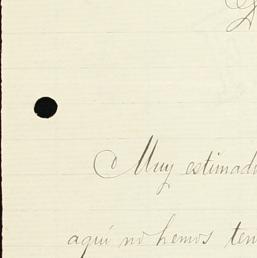 Muy estimad
aquí no hemos ten